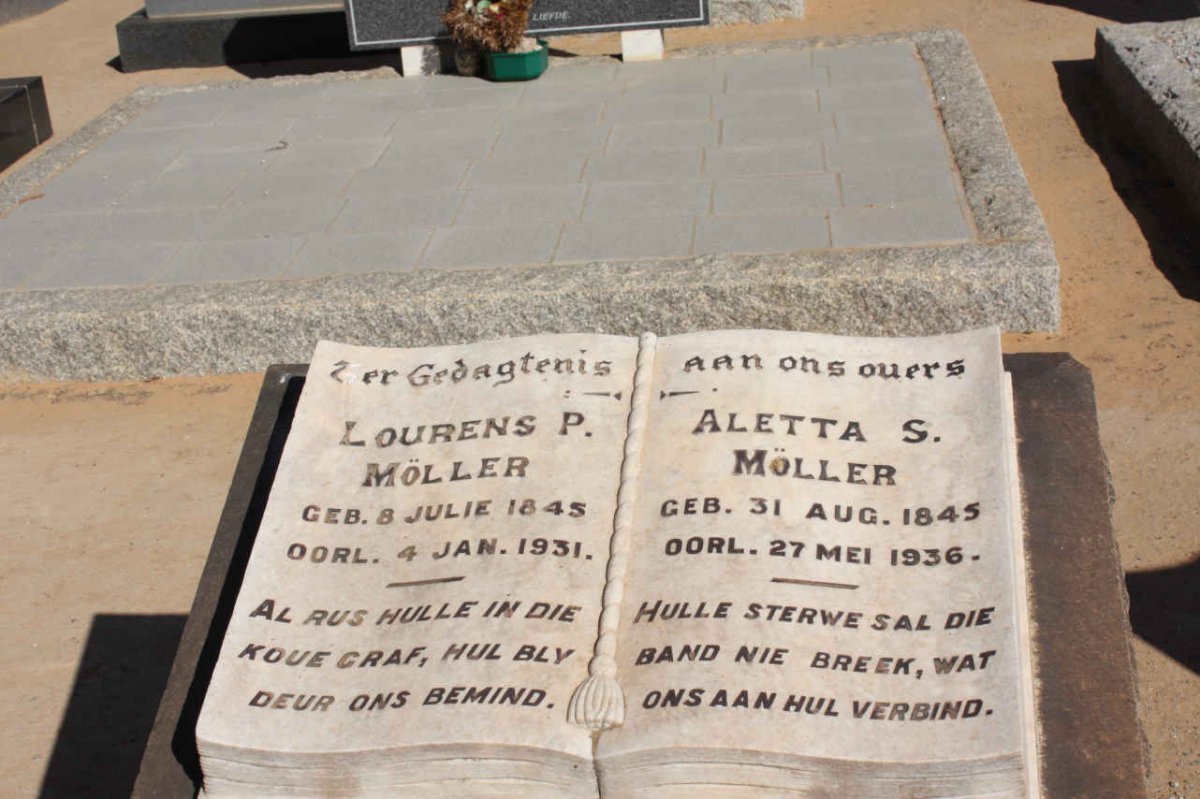 LIEFDE.
Ter Gedagtenis aan ons ouers
LOURENS P.
MÖLLER
GEB. 8 JULIE 1845
OORL. 4 JAN. 1931.
AL RUS HULLE IN DIE
KOUE GRAF, HUL BLY
DEUR ONS BEMIND.
ALETTA S.
MÖLLER
GEB. 31 AUG. 1845
OORL. 27 MEI 1936.
HULLE STERWE SAL DIE
BAND NIE BREEK, WAT
ONS AAN HUL VERBIND.